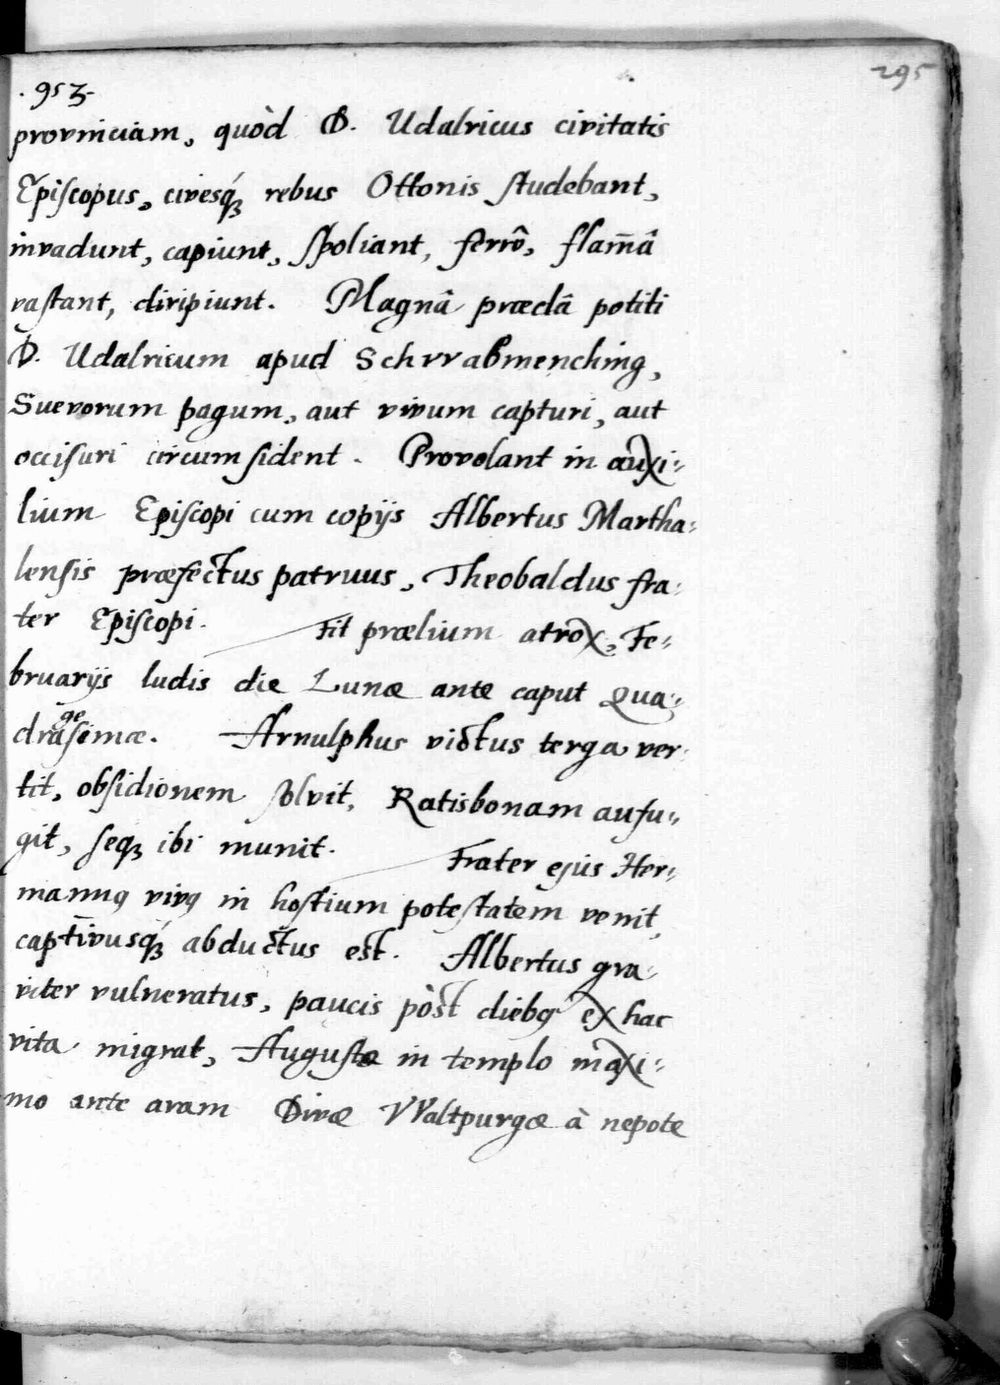 295
.953.
provinciam, quòd D. Udalricus civitatis
Episcopus, civesq́ꝫ rebus Ottonis studebant,
invadunt, capiunt, spoliant, ferrô, flam̄â
vastant, diripiunt. Magnâ prædâ potiti
D. Udalricum apud Schvvabmenching,
Suevorum pagum, aut vivum capturi, aut
occisuri circumsident. Provolant in auxi-
lium Episcopi cum copijs Albertus Martha-
lensis præfectus patruus, Theobaldus fra-
ter Episcopi. Fit prælium atrox, Fe-
bruarijs ludis die Lunæ ante caput Qua-
dragesimæ. Arnulphus victus terga ver-
tit, obsidionem solvit, Ratisbonam aufu-
git, seqꝫ ibi munit. Frater ejus Her-
mannꝰ vivꝰ in hostium potestatem venit,
captivusq́ꝫ abductus est. Albertus gra-
viter vulneratus, paucis pòst diebꝰ ex hac
vita migrat, Augustæ in templo maxi-
mo ante aram Divæ VValtpurgæ à nepote